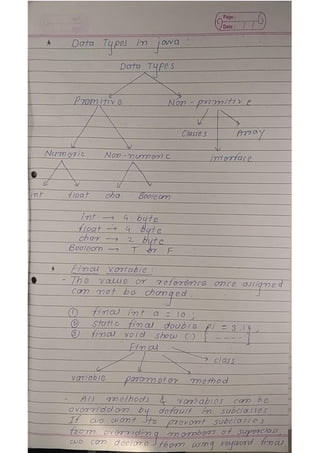 Page :
Date : / /
* Data Types In java :
Data Types
Primitive Non-primitive
Classes Array
Interface
Numeric Non-numeric
int float cha Boolean
int → 4 byte
float → 4 byte
char → 2 byte
Boolean → T or F
* Final variable :
- The value or reference once assigned
can not be changed.
① final int a = 10 ;
② static final double pi = 3.14 ;
③ final void show () { ---- }
Final
class
variable parameter method
- All methods & variables can be
overridden by default in subclasses
If we want to prevent subclasses
from overriding members of superclass
we can declare them using keyword final